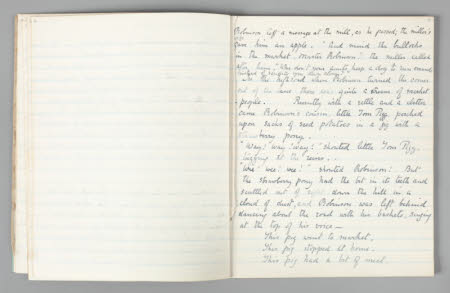 Robinson left a message at the mill, as he passed; the miller's
gave him an apple. "And mind the bullocks
in the market, master Robinson!" the miller called
after him. "Why don't you
In the high road when Robinson turned the corner
out of the lane there was quite a stream of market
people. Presently with a rattle and a clatter
came Robinson's cousin, little Tom Pigg perched
upon sacks of seed potatoes in a gig with a
strawberry pony.
"Way! way! way!" shouted little Tom Pigg,
tugging at the reins.
"Wee! wee! wee!" shouted Robinson! But
the strawberry pony had the bit in its teeth and
scuttled out of sight down the hill in a
cloud of dust, and Robinson was left behind
dancing about the road with his baskets, singing
at the top of his voice—
This pig went to market,
This pig stopped at home.
This pig had a bit of meat